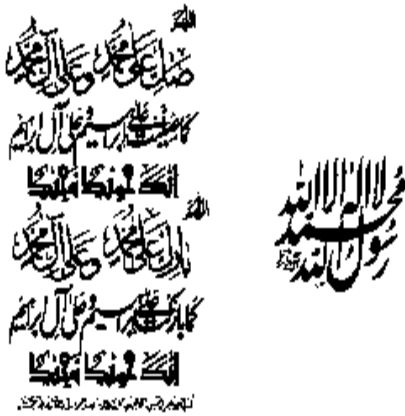 اللهم
صل على محمد وعلى آل محمد
كما صليت على إبراهيم وعلى آل إبراهيم
إنك حميد مجيد
اللهم
بارك على محمد وعلى آل محمد
كما باركت على إبراهيم وعلى آل إبراهيم
إنك حميد مجيد
لا إله إلا الله
محمد
رسول الله